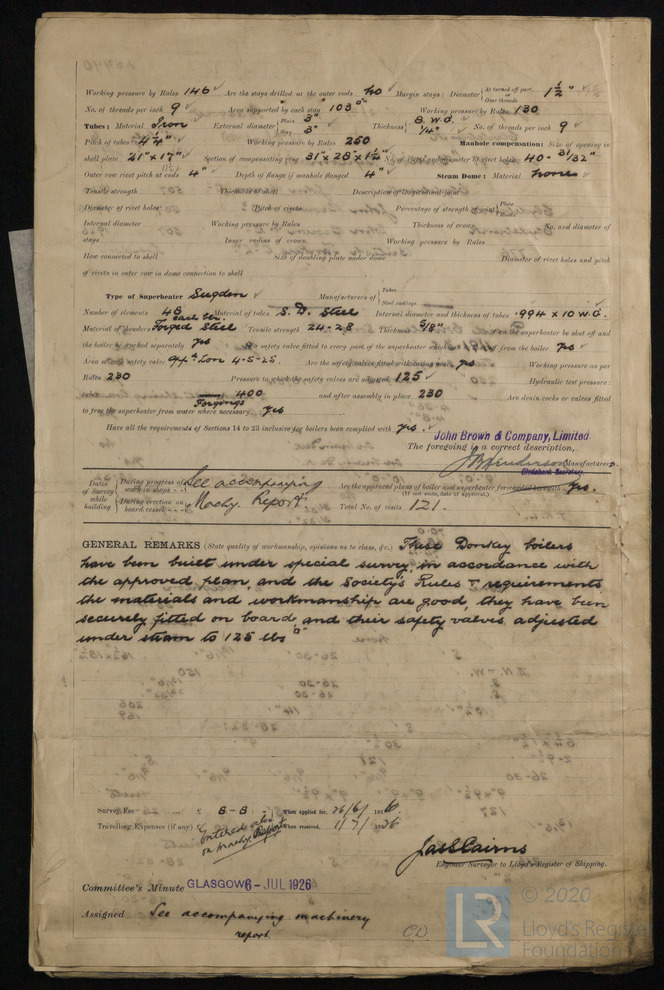 Working pressure by Rules 146 Are the stays drilled at the outer ends No Margin stays: Diameter At turned off part, or Over threads 1½"
No. of threads per inch 9 Area supported by each stay 103 Working pressure by Rules 130
Tubes: Material Iron External diameter Plain 3" Stay 3" Thickness 8. W.G. ¼" No. of threads per inch 9
Pitch of tubes 4¼" Working pressure by Rules 250 Manhole compensation: Size of opening in
shell plate 21" x 17" Section of compensating ring 31" x 28" x 1½" No. of rivets and diameter of rivet holes 40 - 31/32"
Outer row rivet pitch at ends 4" Depth of flange if manhole flanged 4" Steam Dome: Material none
Tensile strength Thickness of shell Description of longitudinal joint
Diameter of rivet holes Pitch of rivets Percentage of strength of joint Plate Rivets
Internal diameter Working pressure by Rules Thickness of crown No. and diameter of
stays Inner radius of crown Working pressure by Rules
How connected to shell Size of doubling plate under dome Diameter of rivet holes and pitch
of rivets in outer row in dome connection to shell
Type of Superheater Sugden Manufacturers of Tubes Steel castings
Number of elements 48 each blr. Material of tubes S. D. Steel Internal diameter and thickness of tubes .994 x 10 W.G.
Material of headers Forged Steel Tensile strength 24-28 Thickness 5/8" Can the superheater be shut off and
the boiler be worked separately yes Is a safety valve fitted to every part of the superheater which can be shut off from the boiler yes
Area of each safety valve 4-5-25. Are the safety valves fitted with easing gear yes Working pressure as per
Rules 230 Pressure to which the safety valves are adjusted 125 Hydraulic test pressure:
tubes Forgings 400 and after assembly in place 230 Are drain cocks or valves fitted
to free the superheater from water where necessary yes
Have all the requirements of Sections 14 to 23 inclusive for boilers been complied with yes.
John Brown & Company, Limited
The foregoing is a correct description,
Henderson Manufacturer.
Clydebank Secretary.
Dates of Survey while building During progress of work in shops - - See accompanying Are the approved plans of boiler and superheater forwarded herewith yes.
During erection on board vessel - - - Machy. Report. (If not state date of approval.) Total No. of visits 121.
GENERAL REMARKS (State quality of workmanship, opinions as to class, &c.) These Donkey boilers
have been built under special survey, in accordance with
the approved plan, and the Society's Rules + requirements
the materials and workmanship are good, they have been
securely fitted on board, and their safety valves adjusted
under steam to 125 lbs □"
Survey Fee ... £ 8 - 8 : When applied for, 26/6/ 1926
Travelling Expenses (if any) £ Entered also on machy Report When received, 1/7/ 1926
Jas S Cairns
Engineer Surveyor to Lloyd's Register of Shipping.
Committee's Minute GLASGOW 6 - JUL 1926
Assigned See accompanying machinery
report.
© 2020
LR Lloyd's Register
Foundation